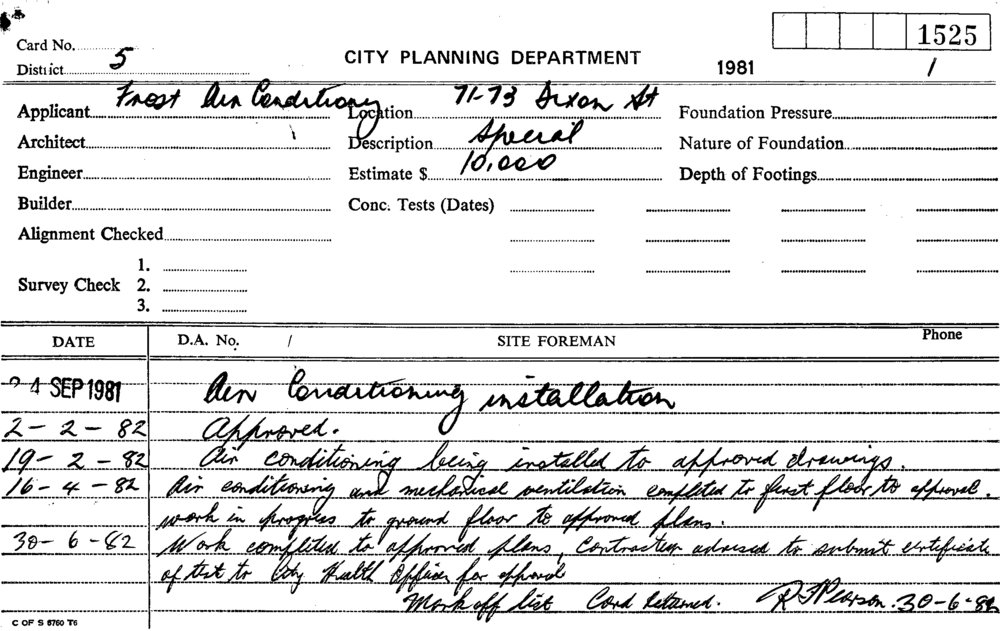 1525
Card No.
District 5
CITY PLANNING DEPARTMENT
1981 /
Applicant Frost Air Conditioning
Location 71-73 Dixon St
Foundation Pressure
Architect
Description Special
Nature of Foundation
Engineer
Estimate $ 10,000
Depth of Footings
Builder
Conc. Tests (Dates)
Alignment Checked
Survey Check 1.
2.
3.
DATE D.A. No. / SITE FOREMAN Phone
24 SEP 1981 Air Conditioning installation
2-2-82 Approved.
19-2-82 Air conditioning being installed to approved drawings.
16-4-82 Air conditioning and mechanical ventilation completed to first floor to approval.
work in progress to ground floor to approved plans.
30-6-82 Work completed to approved plans, Contractor advised to submit certificate
of test to City Health Officer for approval
Mark off list Card Returned. R Pearson. 30-6-82
C OF S 8760 T6